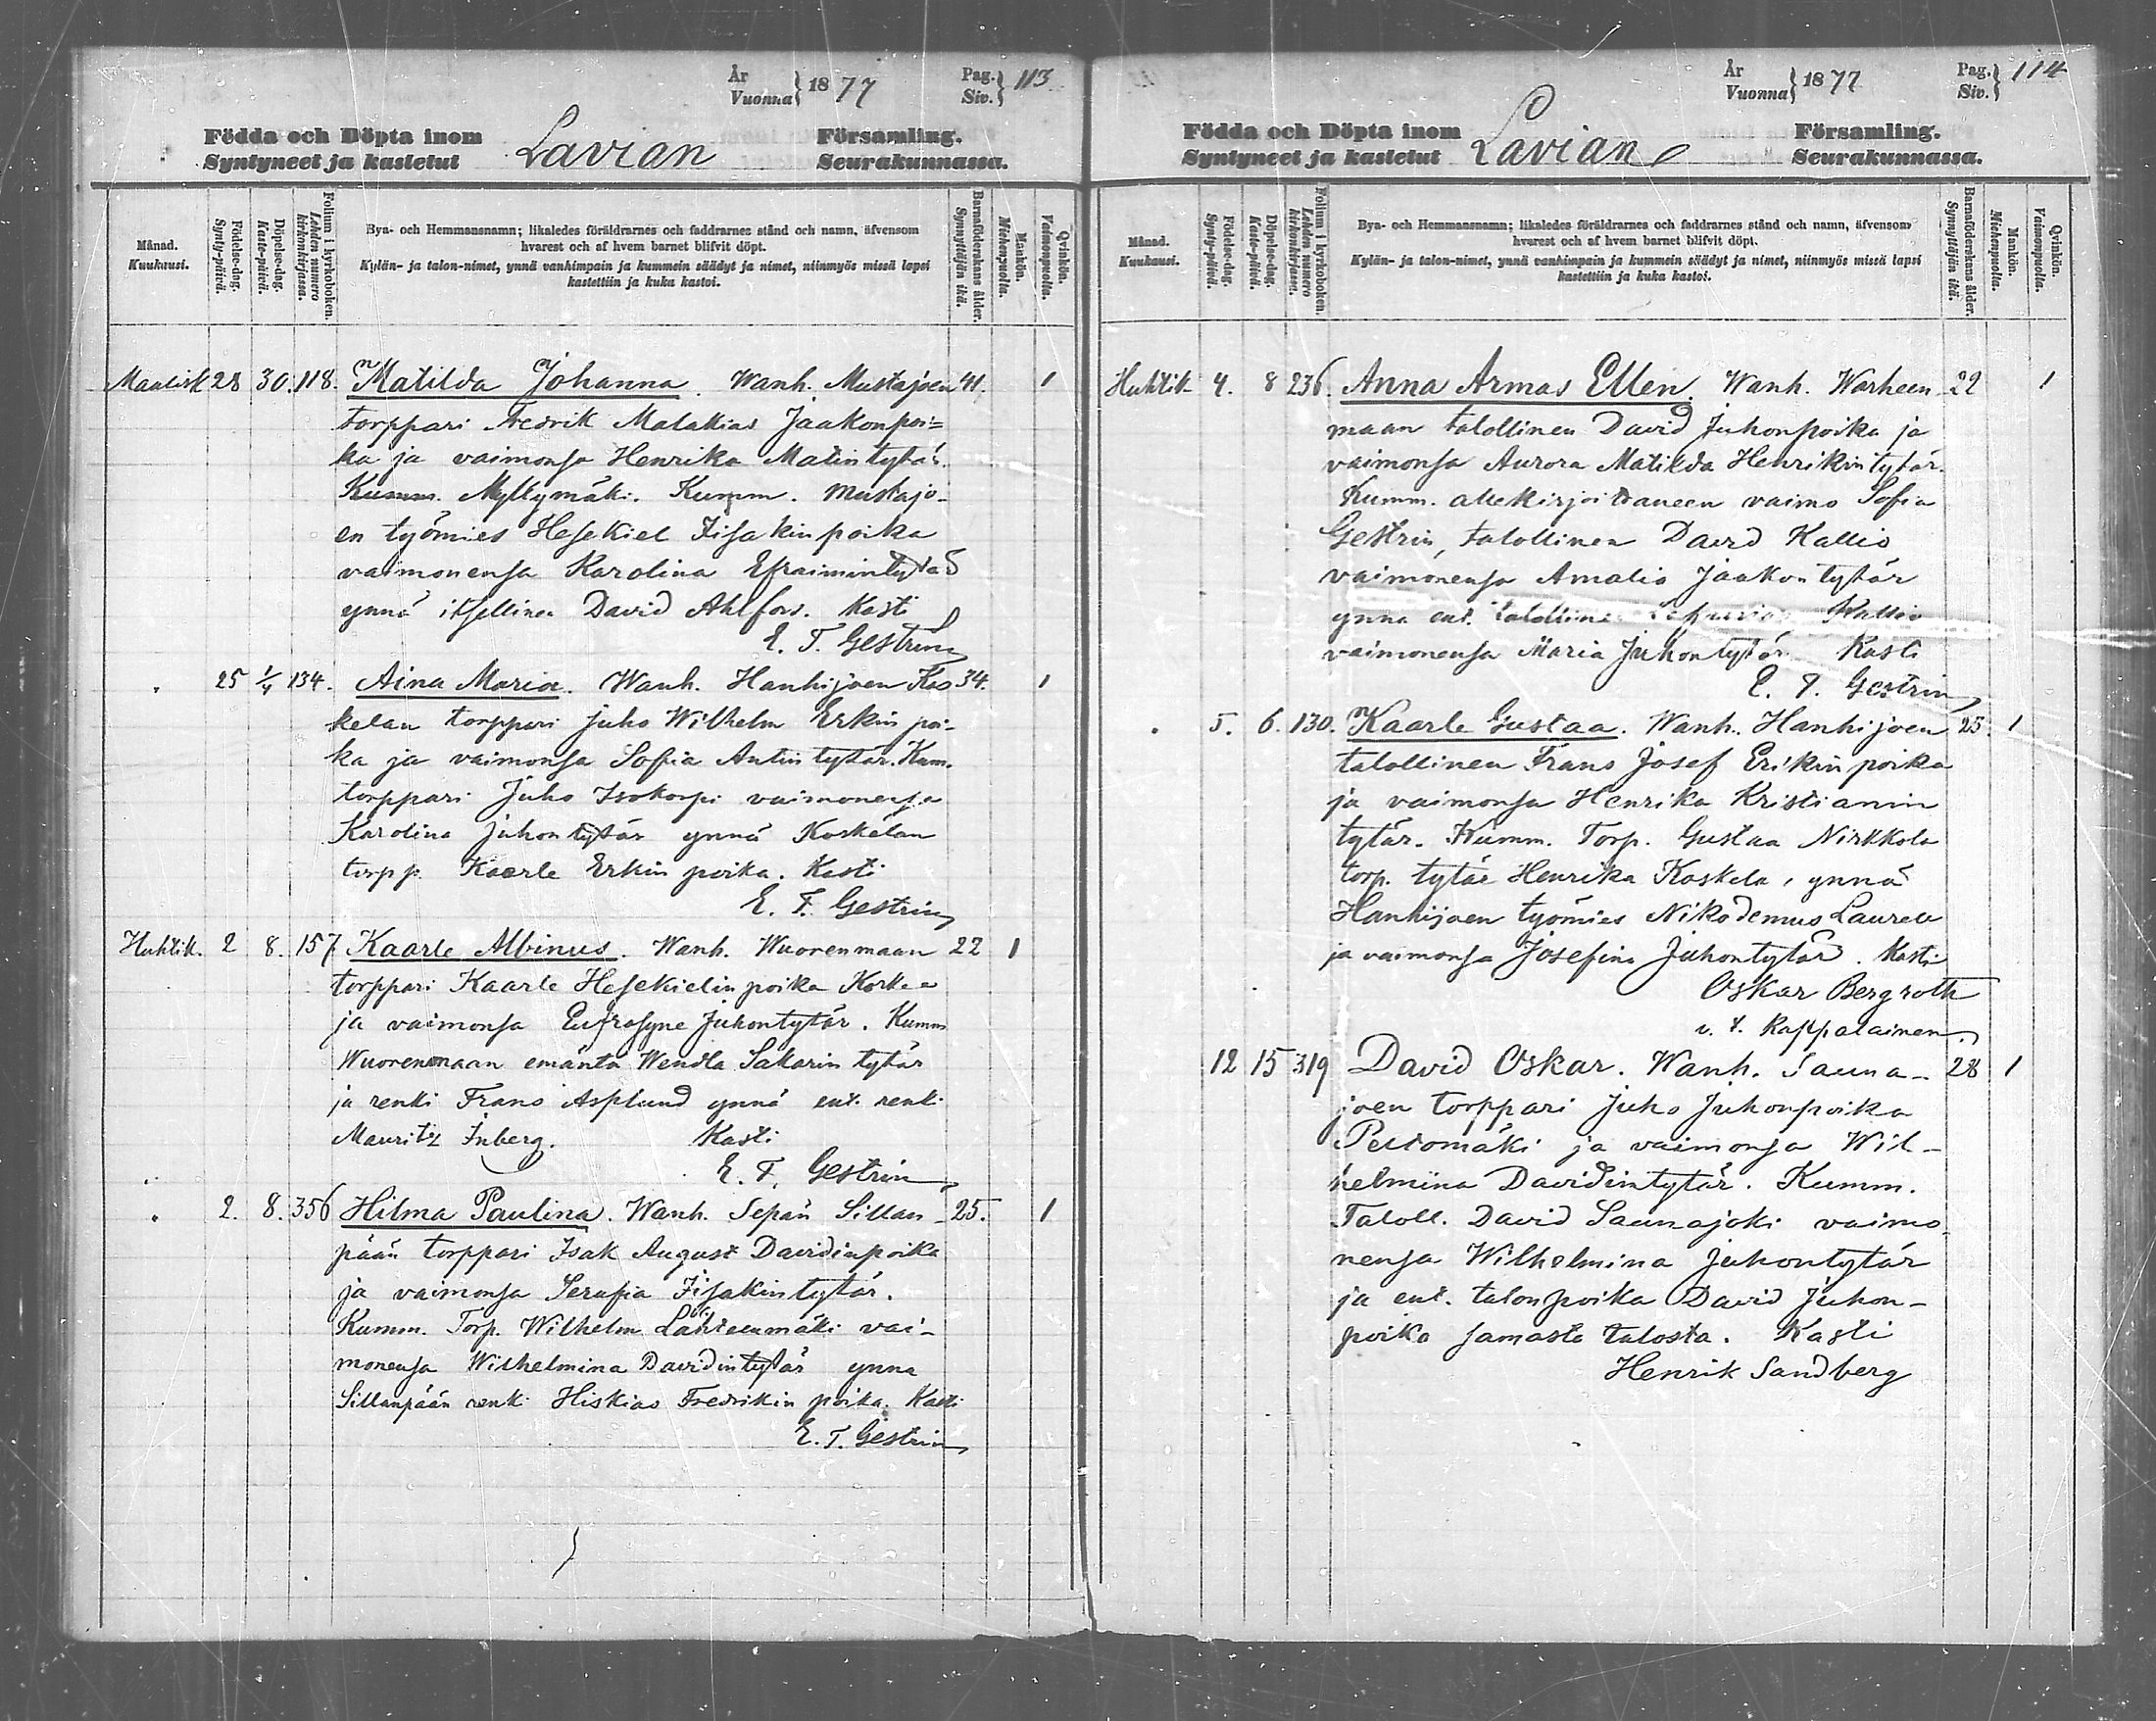 År
Vuonna } 18 77
Pag.
Siv. } 113
Födda och Döpta inom
Syntyneet ja kastetut
Lavian
Församling.
Seurakunnassa.
Månad.
Kuukausi.
Födelse-dag.
Synty-päivä.
Döpelse-dag.
Kaste-päivä.
Folium i kyrkoboken.
Lehden numero
kirkonkirjassa.
Bya- och Hemmansnamn; likaledes föräldrarnes och faddrarnes stånd och namn, äfvensom
hvarest och af hvem barnet blifvit döpt.
Kylän- ja talon-nimet, ynnä vanhimpain ja kummein säädyt ja nimet, niinmyös missä lapsi
kastettiin ja kuka kastoi.
Barnaföderskans ålder.
Synnyttäjän ikä.
Mankön.
Miehenpuolia.
Qvinkön.
Vaimonpuolia.
Maalisk 28 30. 118. Matilda Johanna. Wanh. Mustajoen 41. 1
torppari Fredrik Malakias Jaakonpoi=
ka ja vaimonsa Henrika Matintytär.
Kumm. Myllymäki. Kumm. Mustajo-
en työmies Hesekiel Iisakinpoika
vaimonensa Karolina Efraimintytär
ynnä itsellinen David Ahlfors. Kasti
E. T. Gestrin
" 25 1/4 134. Aina Maria. Wanh. Hanhijoen Kos 34. 1
kelan torppari Juho Wilhelm Erkin poi-
ka ja vaimonsa Sofia Antin tytär. Kum.
torppari Juho Isokorpi vaimonensa
Karolina Juhontytär ynnä Koskelan
torpp. Kaarle Erkin poika. Kasti
E. T. Gestrin
Huhtik. 2 8. 157 Kaarle Albinus. Wanh. Wuorenmaan 22 1
torppari Kaarle Hesekielin poika Korkea
ja vaimonsa Eufrosyne Juhontytär. Kumm
Wuorenmaan emäntä Wendla Sakarin tytär
ja renki Frans Asplund ynnä ent. renki
Mauritz Inberg. Kasti
E. T. Gestrin
" 2. 8. 356 Hilma Paulina. Wanh. Sepän Sillan- 25. 1
pään torppari Isak August Davidinpoika
ja vaimonsa Serafia Iisakintytär.
Kumm. Torp. Wilhelm Lähteenmäki vai-
monensa Wilhelmina Davidintytär ynna
Sillanpään renki Hiskias Fredrikin poika. Kasti
E. T. Gestrin
År
Vuonna } 18 77
Pag.
Siv. } 114
Födda och Döpta inom
Syntyneet ja kastetut
Lavian
Församling.
Seurakunnassa.
Månad.
Kuukausi.
Födelse-dag.
Synty-päivä.
Döpelse-dag.
Kaste-päivä.
Folium i kyrkoboken.
Lehden numero
kirkonkirjassa.
Bya- och Hemmansnamn; likaledes föräldrarnes och faddrarnes stånd och namn, äfvensom
hvarest och af hvem barnet blifvit döpt.
Kylän- ja talon-nimet, ynnä vanhimpain ja kummein säädyt ja nimet, niinmyös missä lapsi
kastettiin ja kuka kastoi.
Barnaföderskans ålder.
Synnyttäjän ikä.
Mankön.
Miehenpuolia.
Qvinkön.
Vaimonpuolia.
Huhtik 4. 8 236. Anna Armas Ellen. Wanh. Warheen- 22 1
maan talollinen David Juhonpoika ja
vaimonsa Aurora Matilda Henrikintytär.
Kumm. allekirjoittaneen vaimo Sofia
Gestrin, talollinen David Kallio
vaimonensa Amalia Jaakontytär
ynna ent. talollinen Kallio
vaimonensa Maria Juhontytär Kasti
E. T. Gestrin
" 5. 6. 130. Kaarle Gustaa. Wanh. Hanhijoen 25. 1
talollinen Frans Josef Erikin poika
ja vaimonsa Henrika Kristianin
tytär. Kumm. Torp. Gustaa Nirkkola
torp. tytär Henrika Koskela, ynnä
Hanhijoen työmies Nikodemus Laurell
ja vaimonsa Josefina Juhontytär. Kasti
Oskar Bergroth
v. t. Kappalainen.
12 15 319 David Oskar. Wanh. Sauna- 28 1
joen torppari Juho Juhonpoika
Pestomäki ja vaimonsa Wil-
helmina Davidintytär. Kumm.
Taloll. David Saunajoki vaimo
nensa Wilhelmina Juhontytär
ja ent. talonpoika David Juhon-
poika samasta talosta. Kasti
Henrik Sandberg